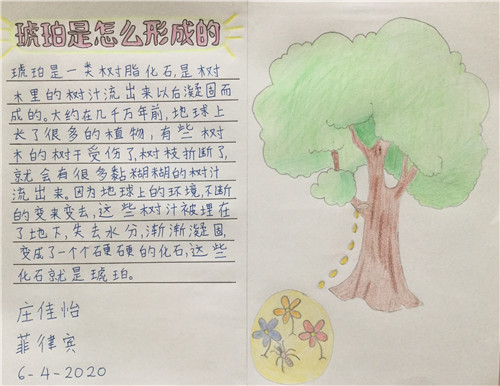 琥珀是怎么形成的
琥珀是一类树脂化石,是树
木里的树汁流出来以后凝固而
成的。大约在几千万年前,地球上
长了很多的植物,有些树
木的树干受伤了,树枝折断了,
就会有很多黏糊糊的树汁
流出来。因为地球上的环境,不断
的变来变去,这些树汁被埋在
了地下,失去水分,渐渐凝固,
变成了一个个石更石更的化石,这些
化石就是琥珀。
庄佳怡
菲律宾
6-4-2020